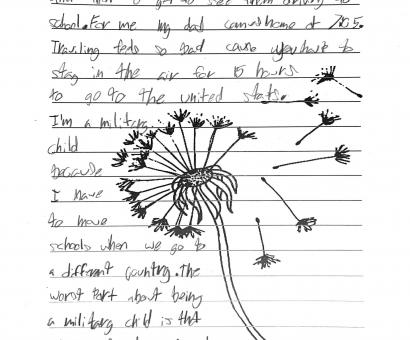 get to see them
school. For me my dad comes home at 7:05.
Traveling feels so bad cause you have to
stay in the air for 15 hours
to go to the united stats.
I'm a military
child
because
I have
to move
schools when we go to
a different country. The
worst part about being
a military child is that